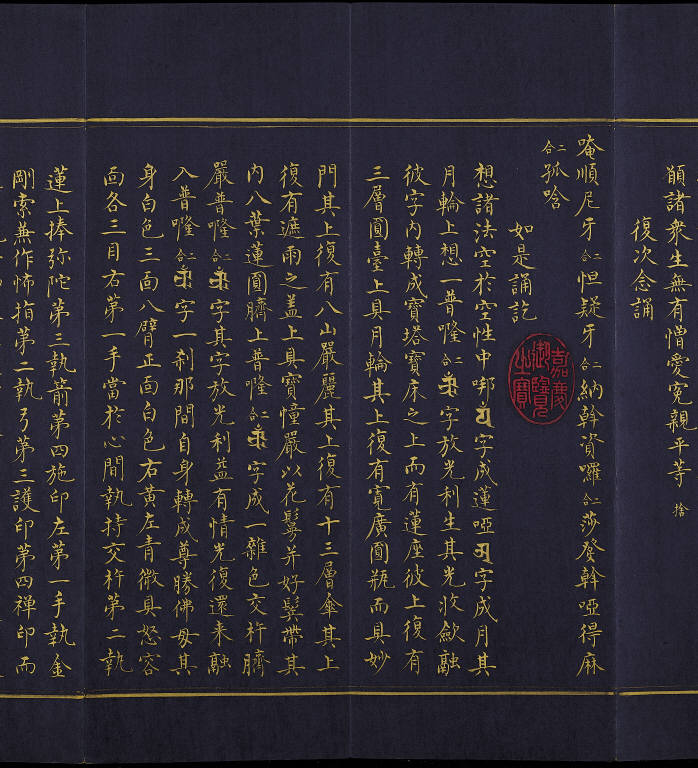 願諸衆生無有憎愛寃親平等 捨
復次念誦
唵順尼牙二合怛疑牙二合納斡資囉二合莎發斡啞得麻
二合孤唅
如是誦訖
想諸法空於空性中 字成蓮啞 字成月其
月輪上想一普嚨二合 字放光利生其光收歛融
彼字內轉成寶塔寶床之上而有蓮座彼上復有
三層圓臺上具月輪其上復有寬廣圓瓶而具妙
門其上復有八山嚴麗其上復有十三層傘其上
復有遮雨之盖上具寶憧嚴以花鬘并好髮帶其
內八葉蓮圓臍上普嚨二合 字成一雜色交杵臍
嚴普嚨二合 字其字放光利益有情光復還来融
入普嚨二合 字一刹那間自身轉成尊勝佛母其
身白色三面八臂正面白色右黄左青微具怒容
面各三目右第一手當於心間執持交杵第二執
蓮上捧弥陀第三執箭第四施印左第一手執金
剛索兼作怖指第二執弓第三護印第四禅印而
嘉慶御覽之寶